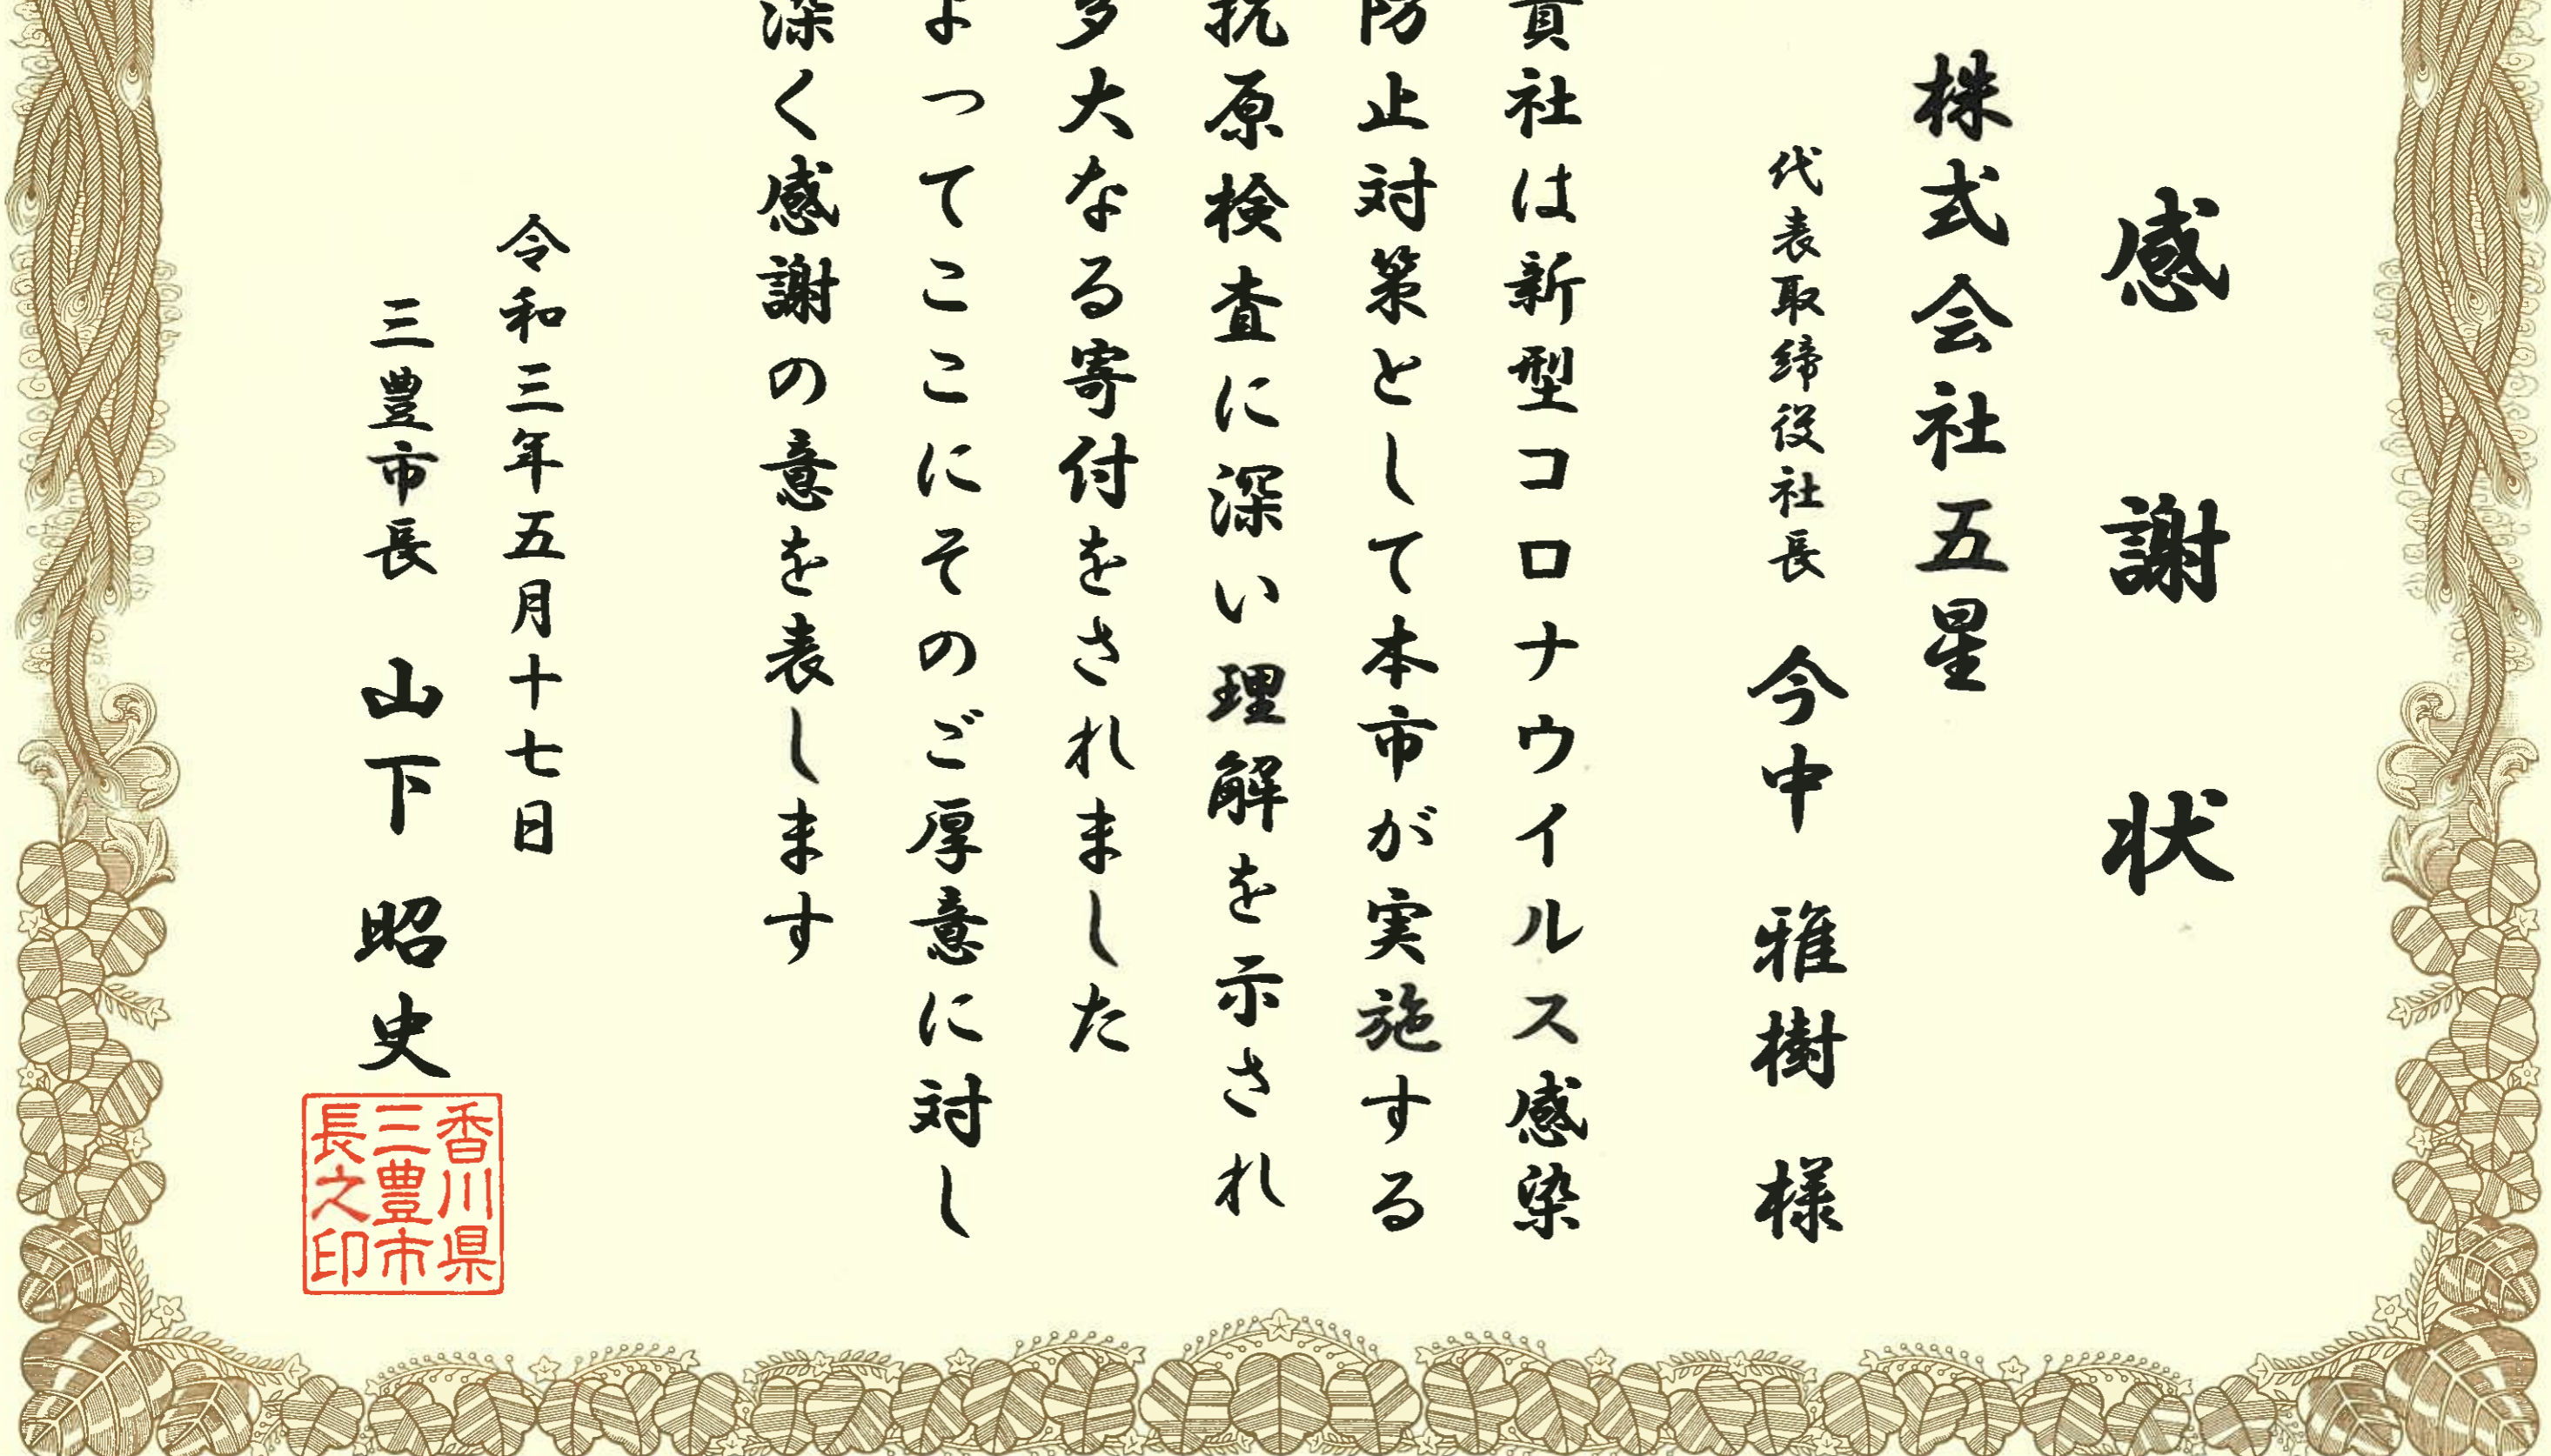 感謝状
株式会社五星
代表取締役社長 今中 雅樹 様
貴社は新型コロナウイルス感染
防止対策として本市が実施する
抗原検査に深い理解を示され
多大なる寄付をされました
よってここにそのご厚意に対し
深く感謝の意を表します
令和三年五月十七日
三豊市長 山下 昭史
香川県
三豊市
長之印